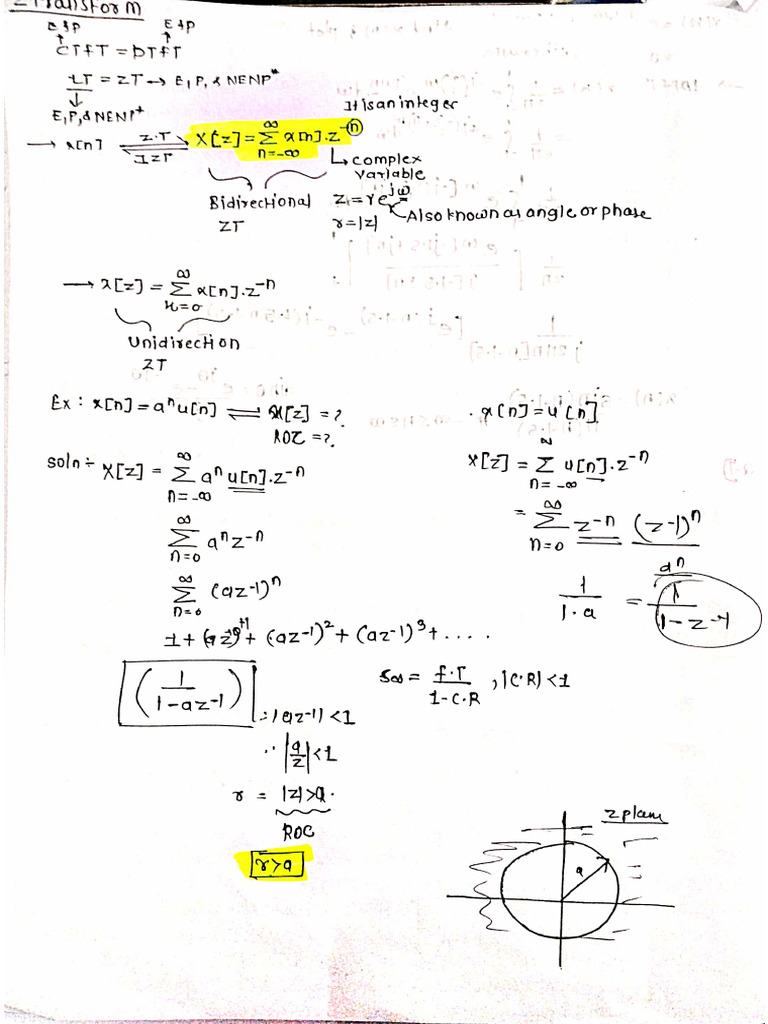 Z Transform
E&P E&P
↑ ↑
CTFT = DTFT
LT = ZT → E, P, & NENP*
↓
E, P, & NENP+
It is an integer
→ x[n] Z.T ⇌ IZT X[z] = ∞ Σ n=-∞ x[n].z^-n
↳ complex variable
Bidirectional ZT
z = re^jω
r = |z|
Also known as angle or phase
→ x[z] = ∞ Σ n=0 x[n].z^-n
Unidirection ZT
Ex: x[n] = a^n u[n] ⇌ X[z] = ?
ROC = ?
Soln÷ X[z] = ∞ Σ n=-∞ a^n u[n].z^-n
∞ Σ n=0 a^n z^-n
∞ Σ n=0 (az^-1)^n
1 + (az^-1)^+1 + (az^-1)^2 + (az^-1)^3 + ....
(1/(1-az^-1))
= |az^-1| < 1
∵ |a/z| < 1
r = |z| > a.
ROC
r > a
. x[n] = u[n]
X[z] = ∞ Σ n=-∞ u[n].z^-n
= ∞ Σ n=0 z^-n (z^-1)^n
a^n
1/1.a = 1/(1-z^-1)
S∞ = F.T/(1-C.R), |C.R| < 1
z plam
a